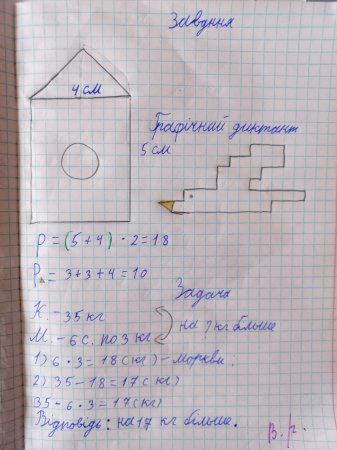 Завдння
4 см
Графічний диктант
5 см
P = (5 + 4) · 2 = 18
P△ = 3 + 3 + 4 = 10
Задача
К - 35 кг
М. - 6 с. по 3 кг
на ? кг більше
1) 6 · 3 = 18 (кг) - моркви.
2) 35 - 18 = 17 (кг)
35 - 6 · 3 = 17 (кг)
Відповідь: на 17 кг більше.